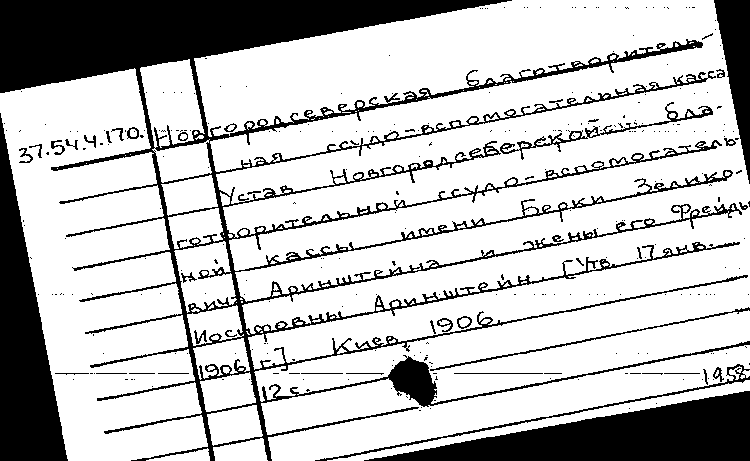 37.54.4.170. Новгородсеверская благотворитель-
ная ссудо-вспомогательная касса
Устав Новгородсеверской бла-
готворительной ссудо-вспомогатель-
ной кассы имени Берки Зелико-
вича Аринштейна и жены его Фрейды
Иосифовны Аринштейн. [Утв. 17 янв.
1906 г.]. Киев, 1906.
12 с.
1958